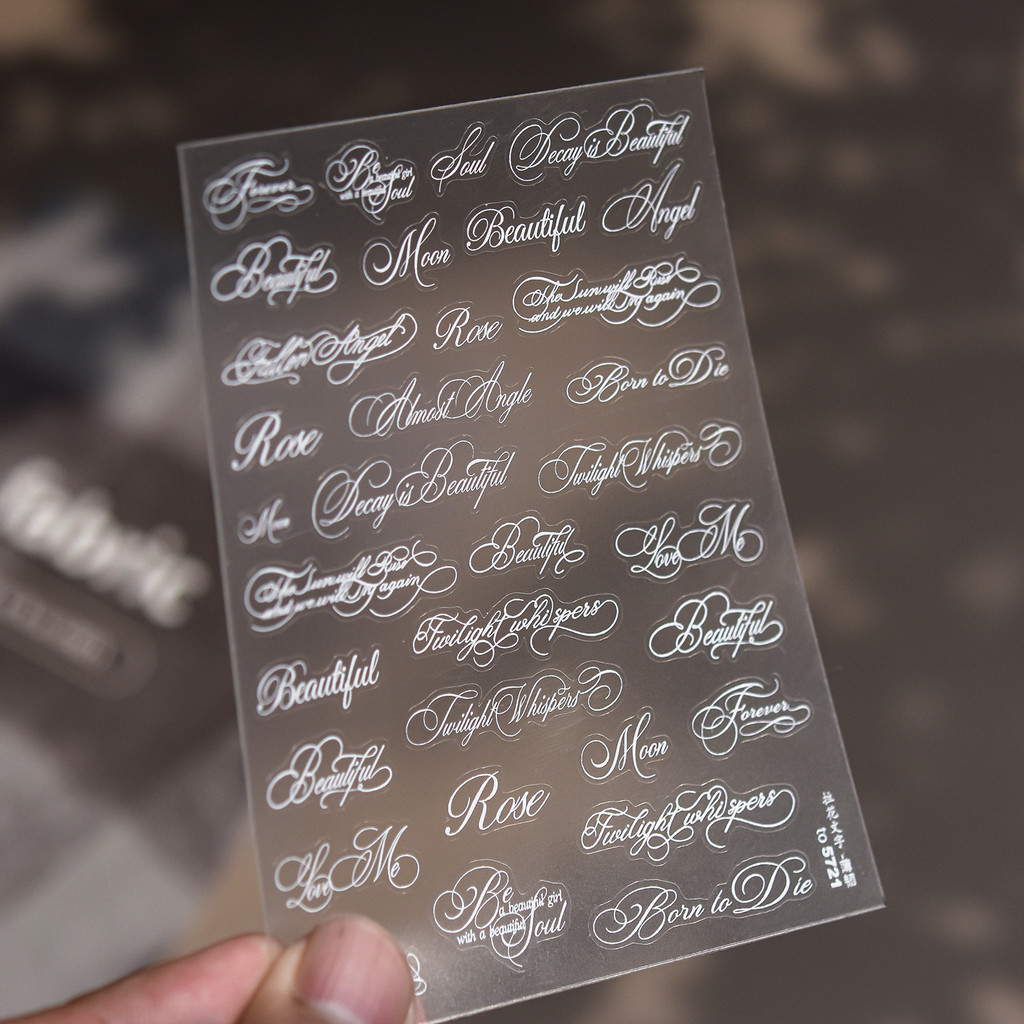 Forever
Be
a beautiful girl
with a beautiful
Soul
Soul
Decay is Beautiful
Beautiful
Moon
Beautiful
Angel
Fallen Angel
Rose
The Sun will Rise
and we will try again
Rose
Almost Angle
Born to Die
Moon
Decay is Beautiful
Twilight Whispers
The Sun will Rise
and we will try again
Beautiful
Love Me
Twilight whispers
Beautiful
Beautiful
Twilight Whispers
Forever
Beautiful
Rose
Moon
Twilight whispers
Love Me
Be
a beautiful girl
with a beautiful
Soul
Born to Die
to 5721